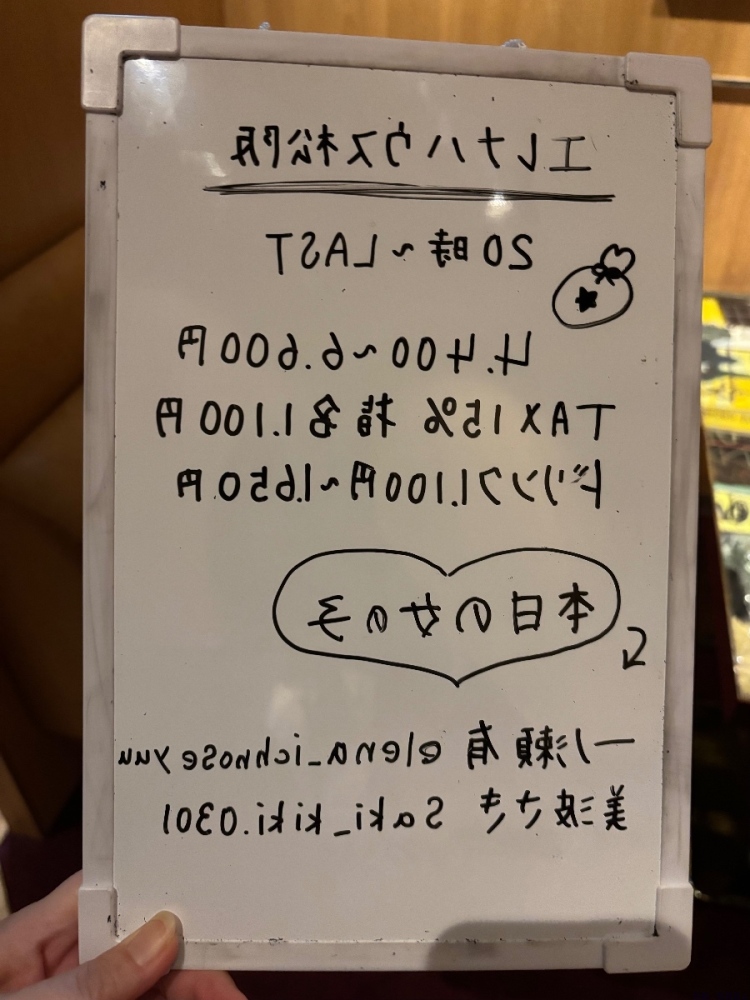 エレナハウス松阪
20時~LAST
4.400~6.600円
TAX15% 指名1.100円
ドリンク1.100円~1.650円
本日の女の子
一ノ瀬有 elena_ichnoseyuu
美波さき Saki_kiki.0301